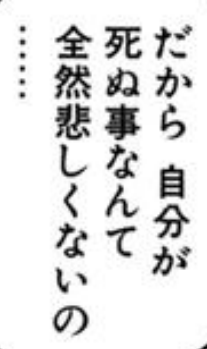 だから 自分が
死ぬ事なんて
全然悲しくないの
……